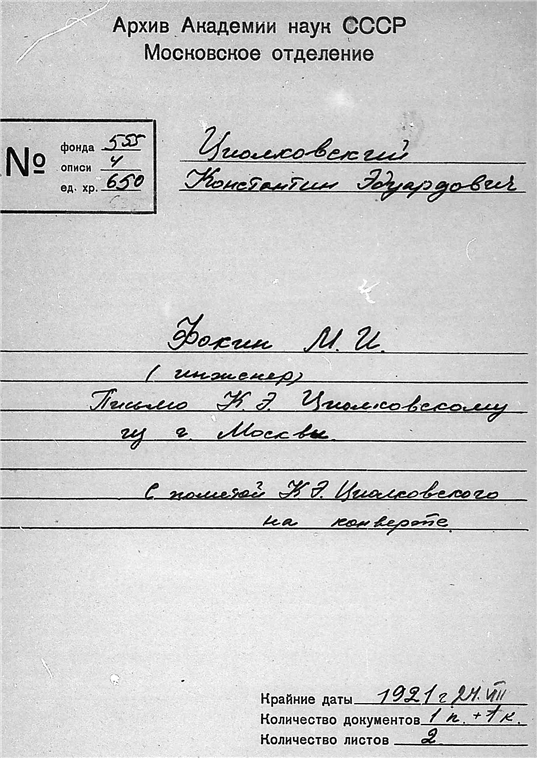 Архив Академии наук СССР
Московское отделение
№
фонда 555
описи 4
ед. хр. 650
Циолковский
Константин Эдуардович
Фокин М. И.
(инженер)
Письмо К. Э. Циолковскому
из г. Москвы.
С пометой К.Э. Циолковского
на конверте
Крайние даты 1921 г 24. VII
Количество документов 1 п. + 1 к.
Количество листов 2